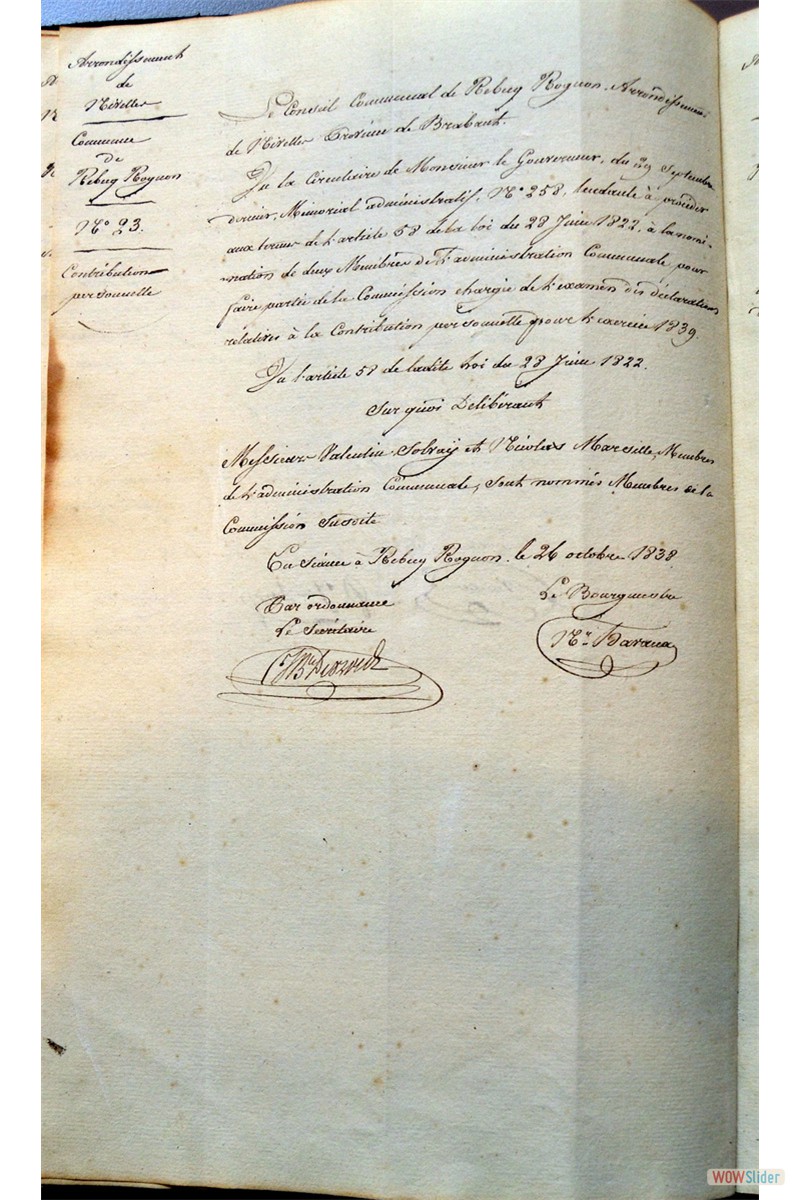 Arrondissement
de
Nivelles
Commune
de
Rebecq Rognon
N° 23.
Contribution
personnelle
Le Conseil Communal de Rebecq Rognon, Arrondissement
de Nivelles Province de Brabant.
Vu la Circulaire de Monsieur le Gouverneur, du 29 Septembre
dernier, Mémorial administratif, N° 258, tendante à procéder
aux termes de l'article 58 de la loi du 28 Juin 1822, à la nomi-
nation de deux Membres de l'administration Communale pour
faire partie de la Commission chargée de l'examen des déclarations
rélatives à la Contribution personnelle pour l'exercice 1839.
Vu l'article 58 de ladite loi du 28 Juin 1822.
Sur quoi Délibérant
Messieurs Valentin Solvaÿ et Nicolas Marsille, Membres
de l'administration Communale, sont nommés Membres de la
Commission susdite
En séance à Rebecq Rognon, le 26 octobre 1838
Par ordonnance
Le Secrétaire
Le Bourgmestre